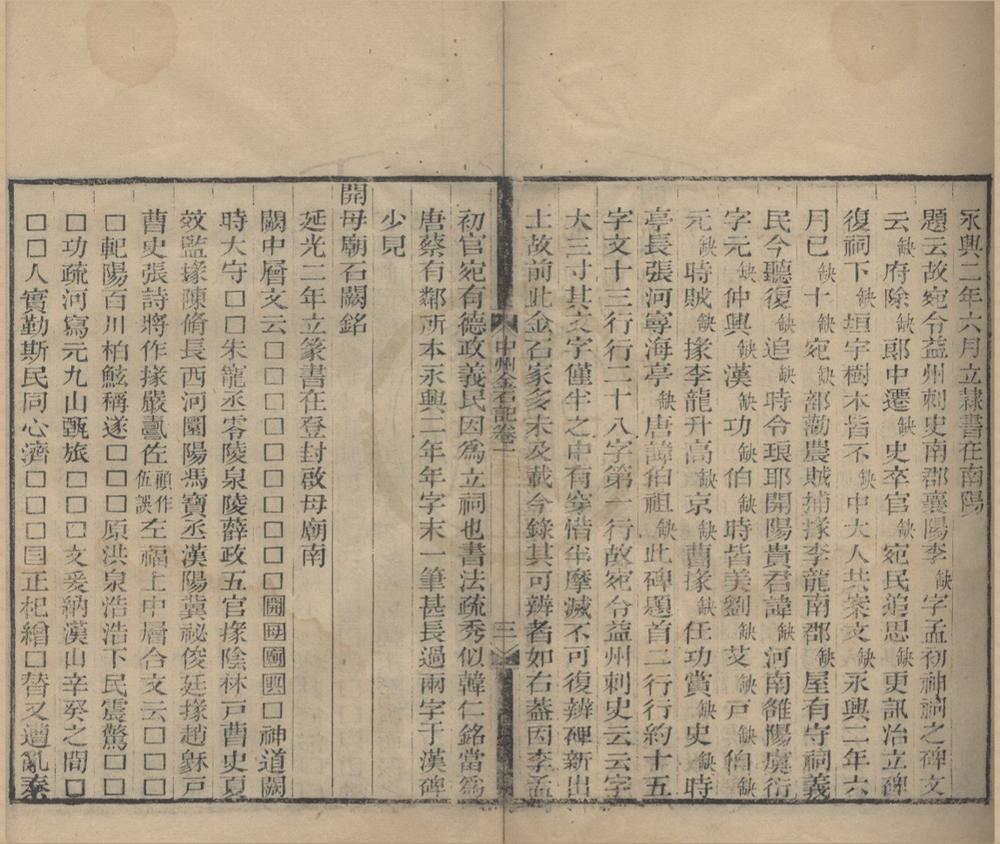 永興二年六月立隸書在南陽
題云故宛令益州刺史南郡襄陽李缺字孟初神祠之碑文
云缺府除缺郎中遷缺史卒官缺宛民追思缺更訊治立碑
復祠下缺垣宇樹木皆不缺中大人共案文缺永興二年六
月巳缺十缺宛缺部勸農賊捕掾李龍南部缺屋有守祠義
民今聽復缺追缺時令琅耶開陽貴君諱缺河南雒陽虞衍
字元缺仲興缺漢缺功缺伯缺時皆美劉缺艾缺戸缺伯缺
元缺時賊缺掾李龍升高缺京缺曹掾缺任功賞缺史缺時
亭長張河寧海亭缺唐譚伯祖缺此碑題首二行行約十五
字文十三行行二十八字第一行故宛令益州刺史云云字
大三寸其文字僅半之中有穿惜半摩滅不可復辨碑新出
土故前此金石家多未及載今錄其可辨者如右葢因李孟
中州金石記卷一
三
初官宛有德政義民因爲立祠也書法疏秀似韓仁銘當爲
唐蔡有鄰所本永興二年年字末一筆甚長過兩字于漢碑
少見
開母廟石闕銘
延光二年立篆書在登封啟母廟南
闕中層文云□□□□□□□□□開母廟興□神道闕
時大守□□朱寵丞零陵泉陵薛政五官掾陰林戸曹史夏
效監掾陳脩長西河圜陽馮寶丞漢陽冀祕俊廷掾趙穆戸
曹史張詩將作掾嚴壽佐顧作伍誤左福上中層合文云□□□□
□軳陽百川柏鮌稱遂□□□原洪泉浩浩下民震驚□□
□功疏河寫元九山甄旅□□□文爰納漢山辛癸之間□
□□人實勤斯民同心濟□□□□正杞繒□替又遭亂秦